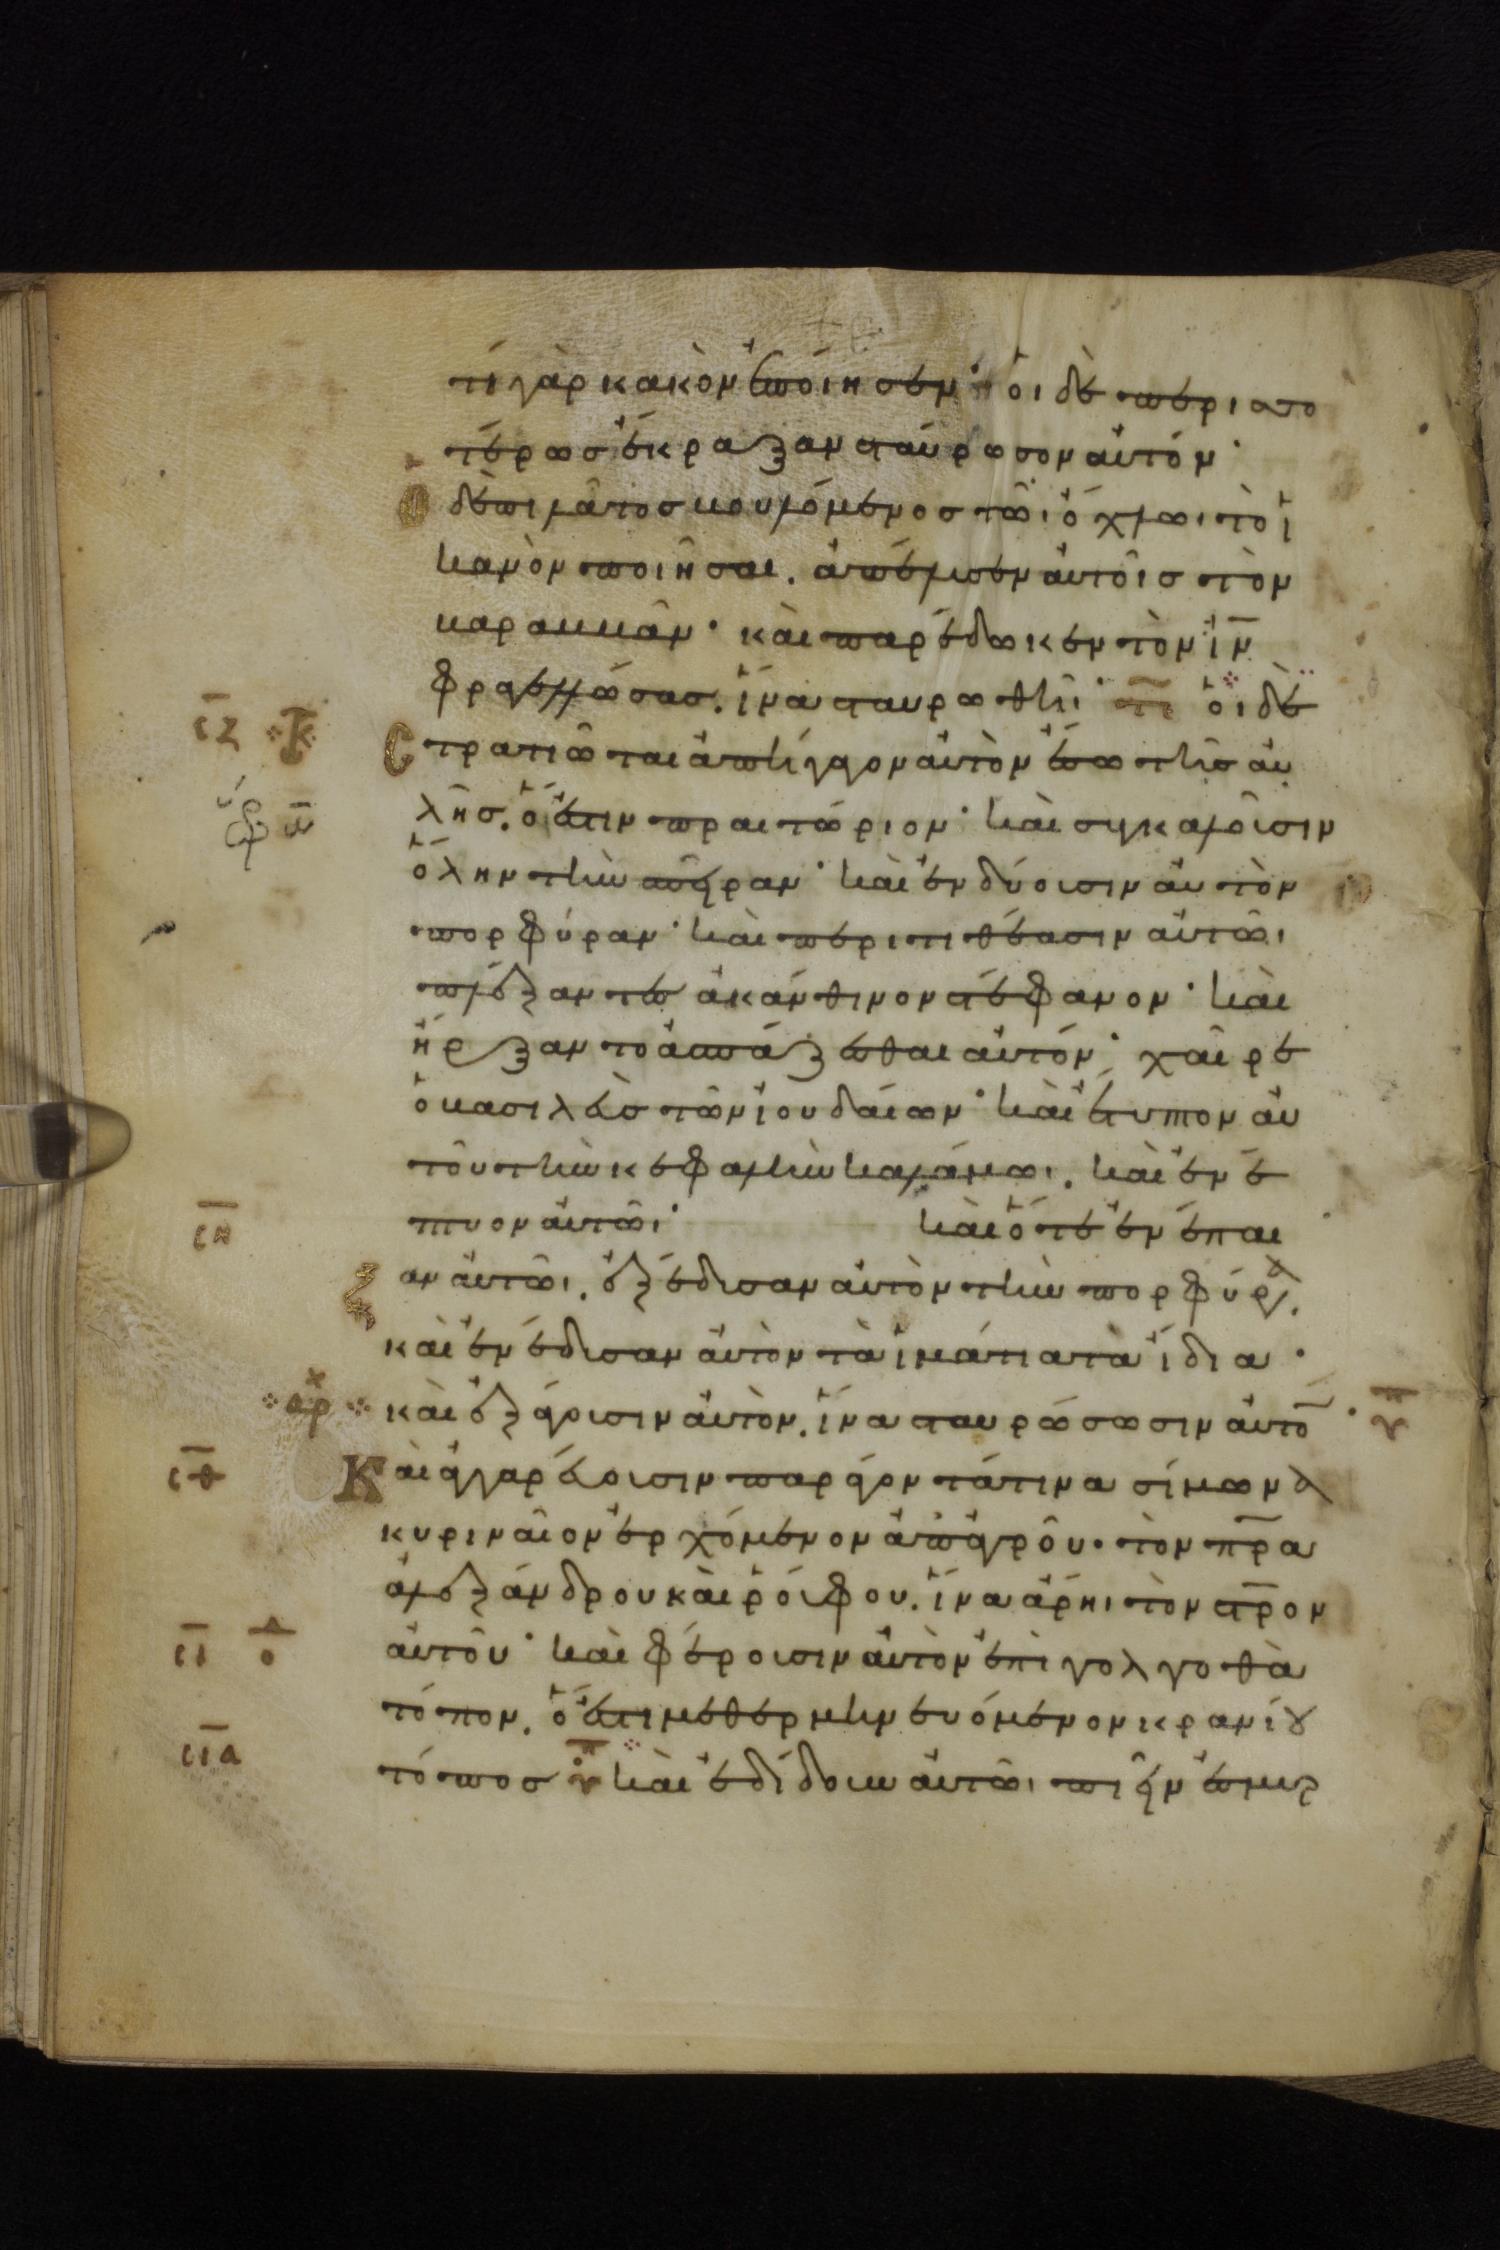 τί γὰρ κακὸν ἐποίησεν· οἱ δὲ περισσο
τέρως ἔκραξαν σταύρωσον αὐτόν·
Ο δὲ πιλᾶτος βουλόμενος τῶι ὄχλωι τὸ ἱ
κανὸν ποιῆσαι. ἀπέλυσεν αὐτοῖς τὸν
βαραββᾶν· καὶ παρέδωκεν τὸν ἰν̅
φραγελλώσας. ἵνα σταυρωθῆι· οἱ δὲ
Στρατιῶται ἀπήγαγον αὐτὸν ἔσω τῆς αὐ
λῆς. ὅ ἐστιν πραιτώριον· καὶ συγκαλοῦσιν
ὅλην τὴν σπεῖραν· καὶ ἐνδύουσιν αὐτὸν
πορφύραν· καὶ περιτιθέασιν αὐτῶι
πλέξαντες ἀκάνθινον στέφανον· καὶ
ἤρξαντο ἀσπάζεσθαι αὐτόν· χαῖρε
ὁ βασιλεὺς τῶν ἰουδαίων· καὶ ἔτυπτον αὐ
τοῦ τὴν κεφαλὴν καλάμωι. καὶ ἐνέ
πτυον αὐτῶι· καὶ ὅτε ἐνέπαι
ξαν αὐτῶι. ἐξέδυσαν αὐτὸν τὴν πορφύρα̅.
καὶ ἐνέδυσαν αὐτὸν τὰ ἱμάτια τὰ ἴδια·
καὶ ἐξάγουσιν αὐτὸν. ἵνα σταυρώσωσιν αὐτό̅·
Καὶ ἀγγαρεύουσιν παράγοντά τινα σίμωνα
κυριναῖον ἐρχόμενον ἀπ' ἀγροῦ· τὸν πρ̅α
ἀλεξάνδρου καὶ ῥούφου. ἵνα ἄρηι τὸν στρ̅ον
αὐτοῦ· καὶ φέρουσιν αὐτὸν ἐπὶ γολγοθὰ
τόπον. ὅ ἐστι μεθερμηνευόμενον κρανίου
τόπος καὶ ἐδίδουν αὐτῶι πιεῖν ἐσμυρ